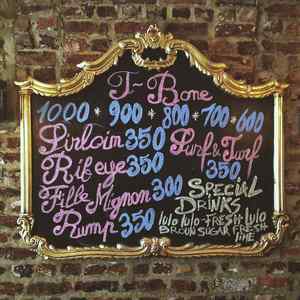 T-Bone
1000 * 900 * 800 * 700 * 600
Sirloin 350
Rib eye 350
Fille Mignon 300
Rump 350
Surf & Turf
350
SPECIAL
DRINKS
lulo lulo - FRESH lulo
BROUN SUGAR FRESH
lime